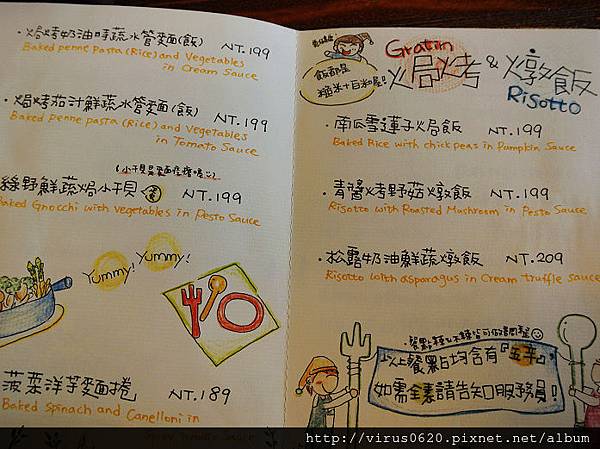 ・焗烤奶油時蔬水管麵(飯) NT.199
Baked penne pasta (Rice) and Vegetables
in Cream Sauce
・焗烤茄汁鮮蔬水管麵(飯) NT.199
Baked penne pasta (Rice) and Vegetables
in Tomato Sauce
綠野鮮蔬焗小干貝 NT.199
Baked Gnocchi with vegetables in Pesto Sauce
Yummy! Yummy!
菠菜洋芋麵捲 NT.189
Baked Spinach and Canelloni in
Gratin
焗烤&燉飯
Risotto
飯都是
糙米+白米喔!
・南瓜雪蓮子焗飯 NT.199
Baked Rice with chickpeas in Pumpkin Sauce
・青醬烤野菇燉飯 NT.199
Risotto with Roasted Mushroom in Pesto Sauce
・松露奶油鮮蔬燉飯 NT.209
Risotto with asparagus in Cream truffle sauce
以上餐點均含有『五辛』,
如需全素請告知服務員!
http://virus0620.pixnet.net/album